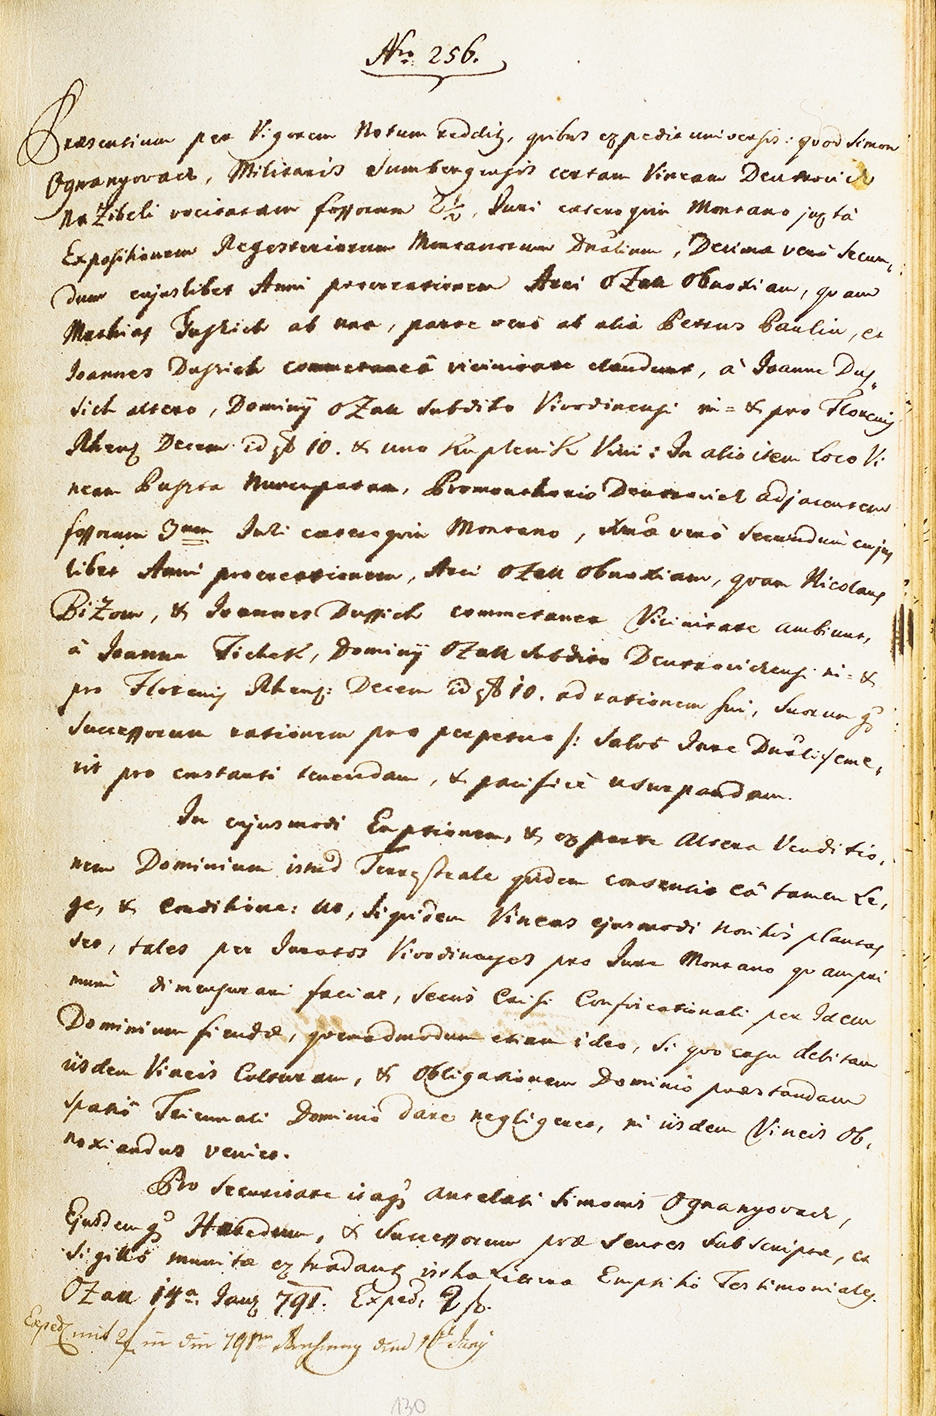 Nro 256.
Præsentium per Vigorem Notum redditz, quibus expedit universis: quod Simon
Ognanyovach, Militaris Sumbergensis certam Vineam Deutrovich
Na Zibeli vocitatam fossorum 2½, Juri cæteroquin Montano juxta
Expositionem Regestorum Montanorum Dnalium, Decimæ vero Secun,
dum cujuslibet Anni procreationem Arci Ozaly Obnoxiam, quam
Mathias Fughich ab una, parte vero ab alia Petrus Paulin, et
Joannes Dussich commetanea vicinitate claudunt, à Joanne Dus,
sich altero, Dominij Ozaly Subdito Vivodinensi in = & pro Florenis
Rhenz Decem id est 10. & uno Kuplenik Vini: In alio item Loco Vi
neam Puszta Nuncupatam, Promonthorio Deutrovich adjacentem
fossorum 3um Juri cæteroquin Montano, Xmæ vero Secundum cujus
libet Anni procreationem, Arci Ozaly Obnoxiam, quam Nicolaus
Bizom, & Joannes Dussich commetanea Vicinitate ambiunt,
à Joanne Fichek, Dominij Ozaly Subdito Deutrovichensi in = &
pro Florenis Rhenz: Decem id est 10. ad rationem sui, Suorumqz
Successorum rationem pro perpetuo /: Salvo Jure Dnali :/ eme,
rit pro constanti tenendam, & pacifice usurpandam.
In cujusmodi Emptionem, & ex parte altera Venditio,
nem Dominium istud Terrestrale quidem consentit eâ tamen Le,
ge, & Conditione: ut, siquidem Vineas ejusmodi noviter plantas
set, tales per Juratos Vivodinenses pro Jure Montano quampri
mum dimensurari faciat, secus Casu Confiscationali per Idem
Dominium fiendæ, quemadmodum etiam ideo, Si quo casu debitam
iisdem Vineis Culturam, & Obligationem Dominio præstandam
spatio Triennali Dominio dare negligeret, in iisdem Vineis Ob,
noxiandus veniet.
Pro Securitate itaqz antelati Simonis Ognanyovach,
Ejusdemqz Hæredum, & Successorum præsentes Subscriptæ, et
Sigillo munitæ extradantz isthæ Litteræ Emptitiæ Testimoniales.
Ozaly 14a Janz 791. Exped: 2 f.
Expedz mit 2 f in die 791 Rechnung den 1ten Juny
130